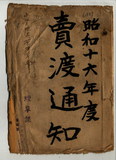 昭和十六年度
賣渡通知